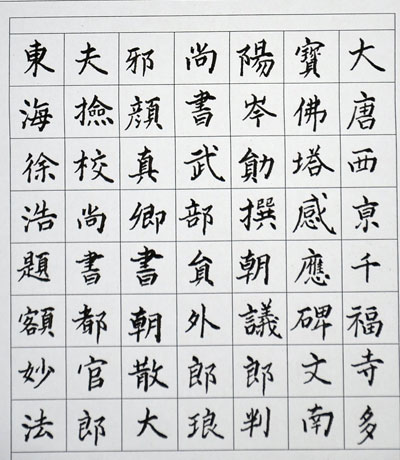 大唐西亰千福寺多
寶佛塔感應碑文南
陽岑勛撰朝議郎判
尚書武部員外郎琅
邪顏真卿書朝散大
夫撿校尚書都官郎
東海徐浩題額妙法